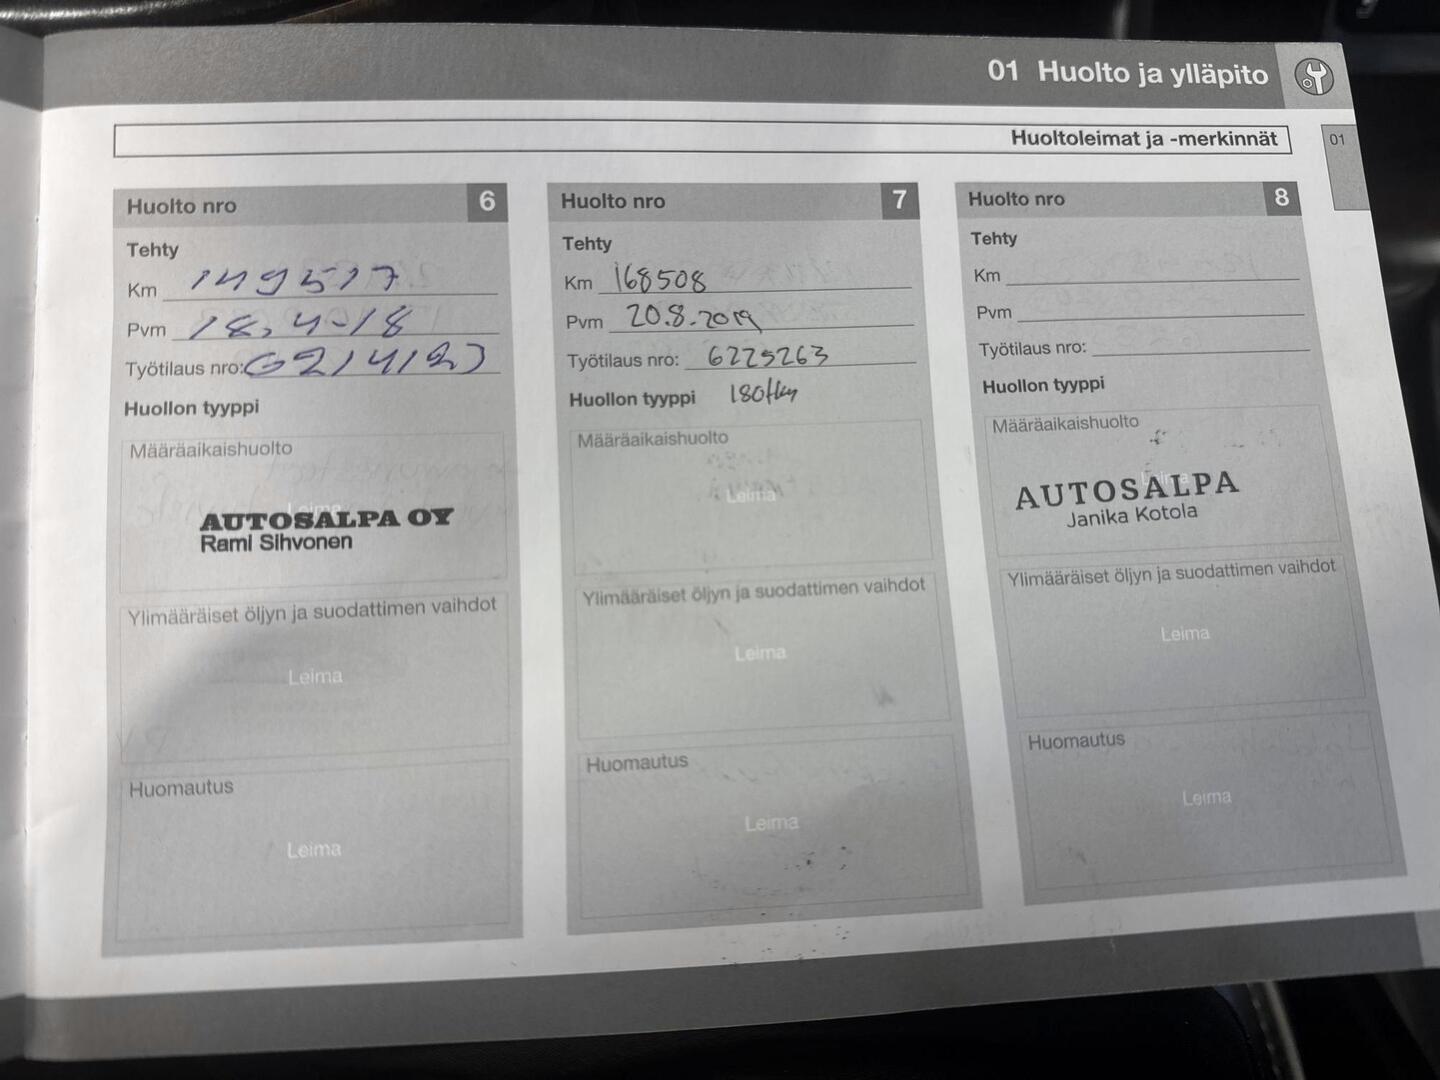 01 Huolto ja ylläpito
Huoltoleimat ja -merkinnät
01
Huolto nro 6
Tehty
Km 149517
Pvm 18.4-18
Työtilaus nro:
Huollon tyyppi
Määräaikaishuolto
Leima
AUTOSALPA OY
Rami Sihvonen
Ylimääräiset öljyn ja suodattimen vaihdot
Leima
Huomautus
Leima
Huolto nro 7
Tehty
Km 168508
Pvm 20.8.2019
Työtilaus nro: 6225263
Huollon tyyppi 180tkm
Määräaikaishuolto
Leima
Ylimääräiset öljyn ja suodattimen vaihdot
Leima
Huomautus
Leima
Huolto nro 8
Tehty
Km
Pvm
Työtilaus nro:
Huollon tyyppi
Määräaikaishuolto
Leima
AUTOSALPA
Janika Kotola
Ylimääräiset öljyn ja suodattimen vaihdot
Leima
Huomautus
Leima